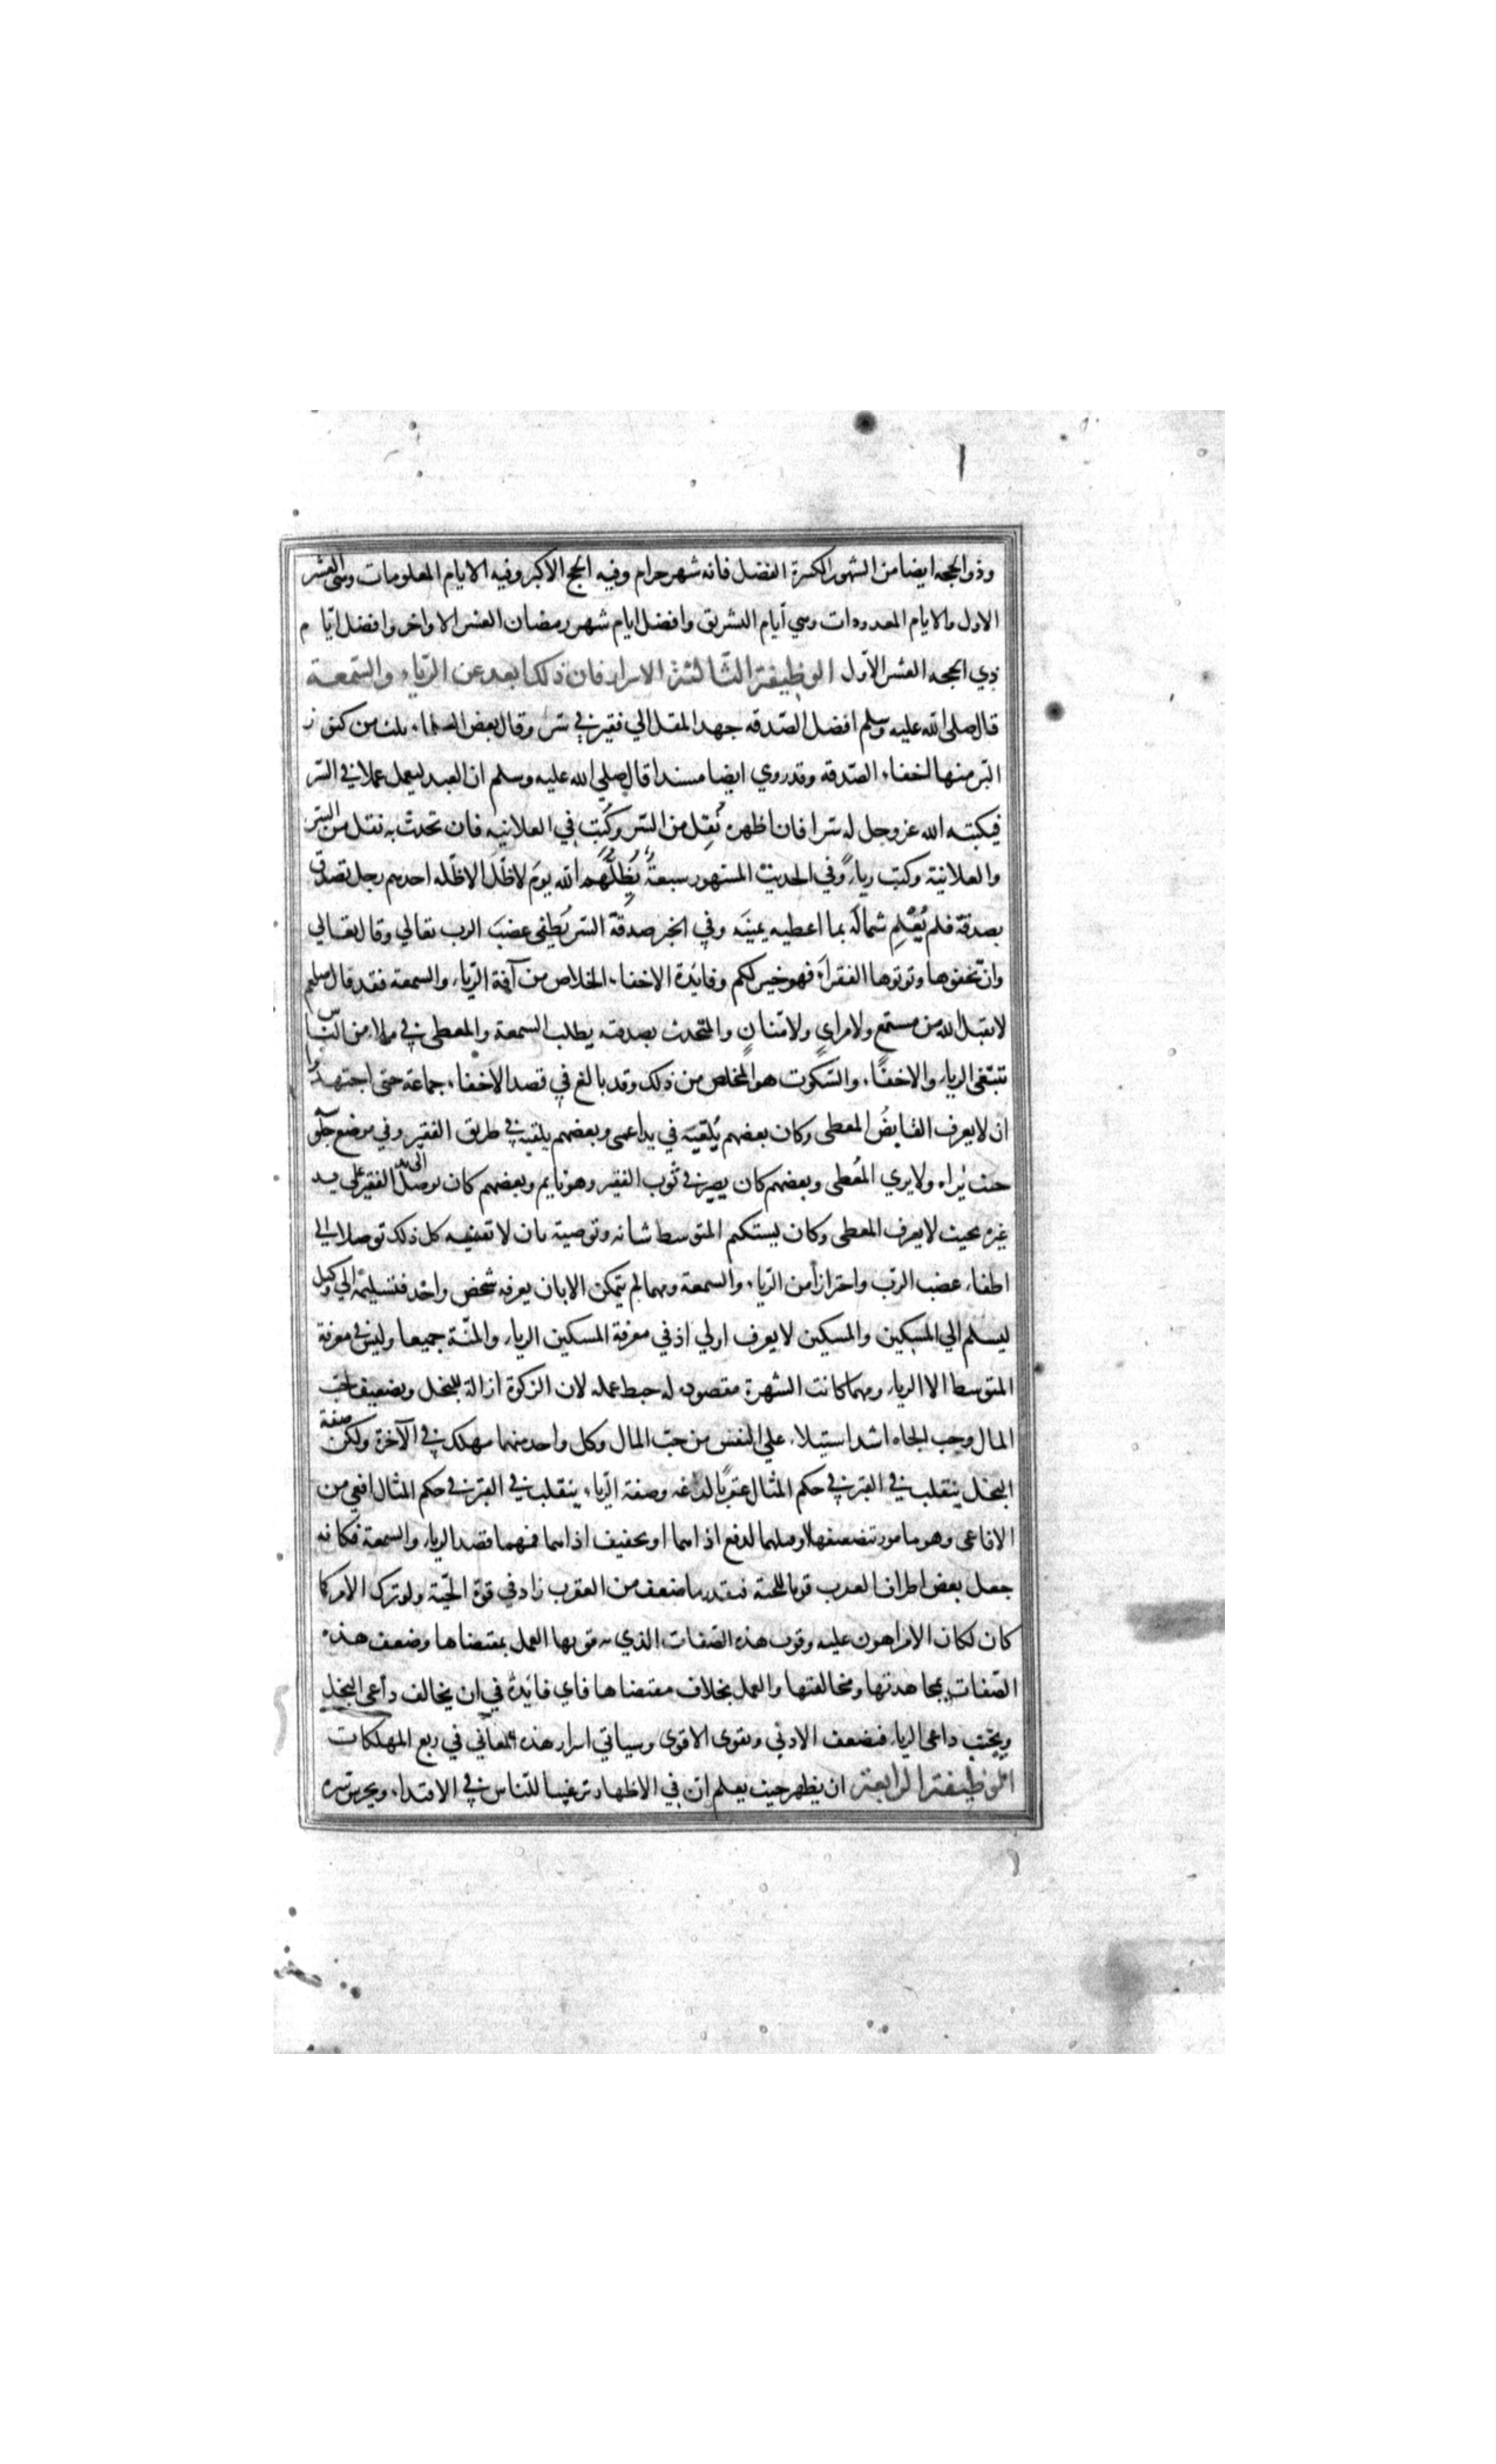 وذو الحجه ايضا من الشهور الكثيرة الفضل فانه شهر حرام وفيه الحج الاكبر وفيه الايام المعلومات وهي العشر
الاول والايام المعدودات وهي أيام التشريق وافضل ايام شهر رمضان العشر الاواخر وافضل ايّام
ذي الحجه العشر الأول الوظيفة الثالثة الاسرار فان ذلك ابعد عن الرّياء والسّمعة
قال صلى الله عليه وسلم افضل الصّدقه جهد المقل الي فقير في سّر وقال بعض العلماء ثلث من كنوز
البّر منها اخفاء الصّدقه وقد روي ايضا مسندا قال صلي الله عليه وسلم ان العبد ليعمل عملا في السّر
فيكتبه الله عز وجل له سّرا فان اظهره نُقِل من السّر وكُتِبَ في العلانيه فان تحدث به نقل من السّر
والعلانية وكتب رياءً وفي الحديث المشهور سبعةٌ يُظِلُّهُم الله يومَ لا ظّل الا ظّله احدهم رجل تصدق
بصدقة فلم يُعْلِم شمالَه بما اعطيه يمينَه وفي الخبر صدقةُ السّر تُطفئ غضبَ الرب تعالي وقال تعالي
وان تخفوها وتوتوها الفقرآء فهو خير لكم وفائدة الاخفاء الخلاص من آفة الرّياء والسمعة فقد قال صلعم
لا يقبل الله من مستمع ولا مراي ولا منّان والمتّحدث بصدقته يطلب السمعة والمعطي في ملا من النّاس
تبتغي الرياء والاخفاء والسّكوت هو المخلص من ذلك وقد بالغ في قصد الاخفاء جماعة حتى اجتهدوا
ان لا يعرف القابضُ المعطى وكان بعضهم يُلقيَه في يد اعمى وبعضهم يلقيه في طريق الفقير وفي موضع جلوسه
حيث يَراه ولا يري المُعطى وبعضهم كان يصير في ثوب الفقير وهو نايم وبعضهم كان يوصل الى يد الفقير علي يد
غيره بحيث لا يعرف المعطى وكان يستكتم المتوسط شانه وتوصيه بان لا تفشيه كل ذلك توصلا الي
اطفاء غضب الرّب واحترازاً من الرّياء والسمعة ومهما لم يتمكن الا بان يعرفه شخص واحد فتسليمه الي وكيل
ليسلم الي المسكين والمسكين لا يعرف اولي اذ في معرفة المسكين الرياء والمنّة جميعا وليس في معرفة
المتوسط الا الرياء ومهما كانت الشهرة مقصوده له حبط عمله لان الزكوة ازالة للبخل وبضعيف لحب
المال وحب الجاه اشد استيلاء علي النفس من حبّ المال وكل واحد منهما مهلك في الآخرة ولكن صفة
البخل ينقلب في القبر في حكم المثال عقربًا لدّاغه وصفة الرّياء ينقلب في القبر في حكم المثال افعي من
الافاعي وهو مامور بتضعيفها او قتلهما لدفع اذاهما او تخفيف اذاهما فمهما قصد الرياء والسمعة فكانه
جعل بعض اطراف العقرب قوتا للحية فبقدر ما ضعف من العقرب زاد في قوة الحّية ولو ترك الامر كما
كان لكان الامر اهون عليه وقوت هذه الصّفات الذي به قوتها العمل بمقتضاها وضعف هذه
الصّفات بمجاهدتها ومخالفتها والعمل بخلاف مقتضاها فاي فائدة في ان يخالف داعي البخل
ويجيب داعي الرياء فيضعف الادني ويقوى الاقوى وسياتي اسرار هذه المعاني في ربع المهلكات
الوظيفة الرابعة ان يظهر حيث يعلم ان في الاظهار ترغيبا للناس في الاقتداء ويحرس سره